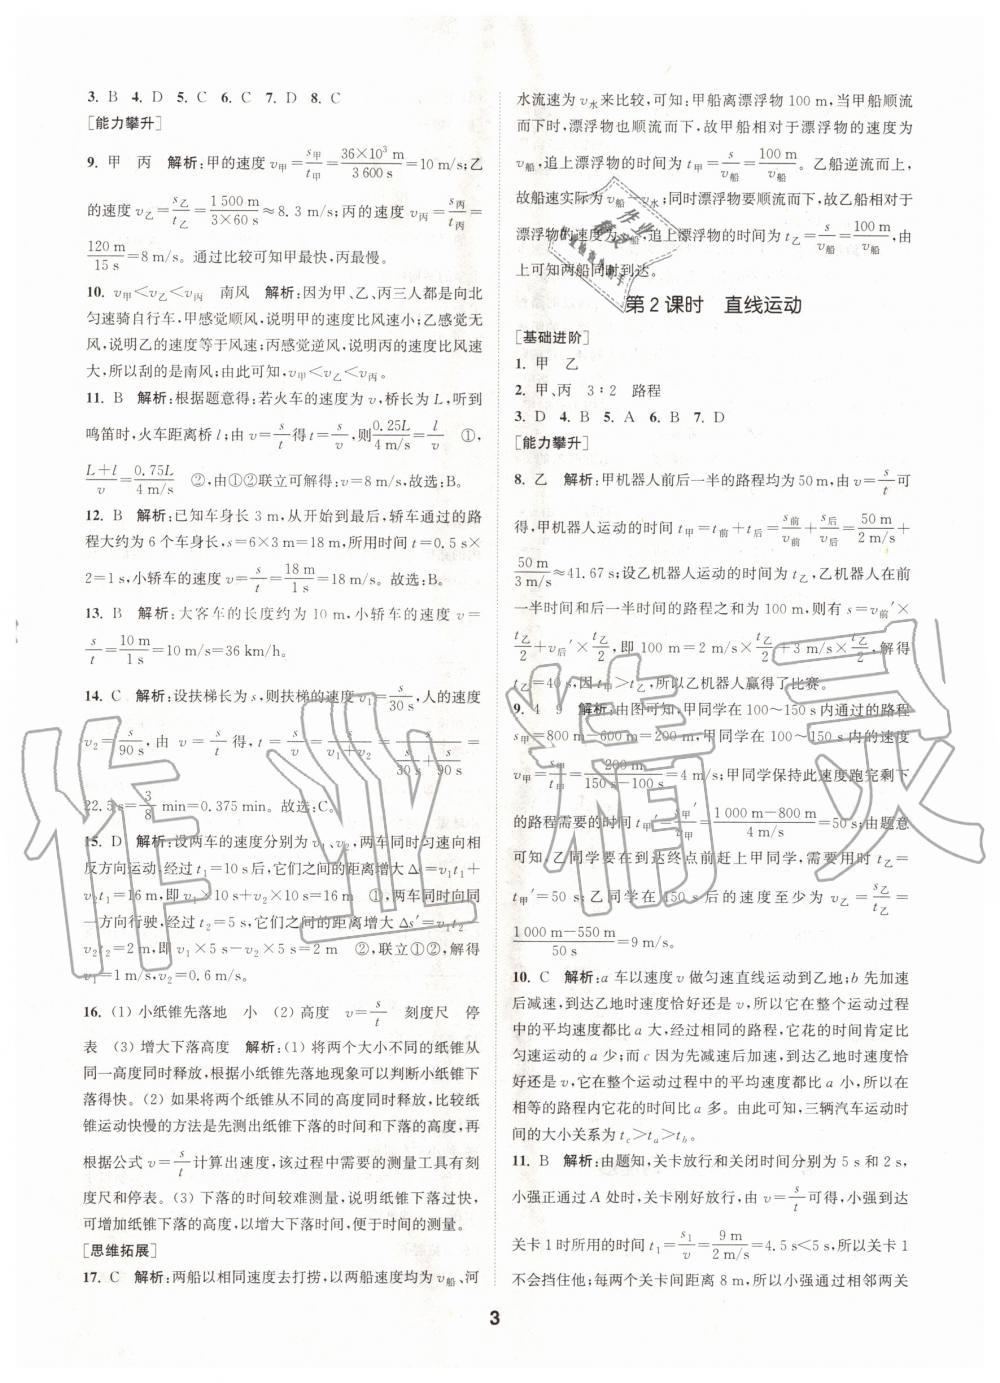 3. B 4. D 5. C 6. C 7. D 8. C
[能力攀升]
9. 甲 丙 解析:甲的速度 v甲=s甲/t甲=36×10³ m/3 600 s=10 m/s;乙
的速度 v乙=s乙/t乙=1 500 m/3×60 s≈8.3 m/s;丙的速度 v丙=s丙/t丙=
120 m/15 s=8 m/s。通过比较可知甲最快,丙最慢。
10. v甲<v乙<v丙 南风 解析:因为甲、乙、丙三人都是向北
匀速骑自行车,甲感觉顺风,说明甲的速度比风速小;乙感觉无
风,说明乙的速度等于风速;丙感觉逆风,说明丙的速度比风速
大,所以刮的是南风;由此可知,v甲<v乙<v丙。
11. B 解析:根据题意得:若火车的速度为 v,桥长为 L,听到
鸣笛时,火车距离桥 l;由 v=s/t得t=s/v,则0.25L/4 m/s=l/v ①,
L+l/v=0.75L/4 m/s ②,由①②联立可解得:v=8 m/s,故选:B。
12. B 解析:已知车身长 3 m,从开始到最后,轿车通过的路
程大约为 6 个车身长,s=6×3 m=18 m,所用时间 t=0.5 s×
2=1 s,小轿车的速度 v=s/t=18 m/1 s=18 m/s。故选:B。
13. B 解析:大客车的长度约为 10 m,小轿车的速度 v=
s/t=10 m/1 s=10 m/s=36 km/h。
14. C 解析:设扶梯长为 s,则扶梯的速度 v₁=s/30 s,人的速度
v₂=s/90 s,由 v=s/t得,t=s/v=s/v₁+v₂=s/(s/30 s+s/90 s)=
22.5 s=3/8 min=0.375 min。故选:C。
15. D 解析:设两车的速度分别为 v₁、v₂,两车同时匀速向相
反方向运动,经过 t₁=10 s后,它们之间的距离增大 Δs=v₁t₁+
v₂t₁=16 m,即 v₁×10 s+v₂×10 s=16 m ①,两车同时向同
一方向行驶,经过 t₂=5 s,它们之间的距离增大 Δs′=v₁t₂-
v₂t₂=2 m,即 v₁×5 s-v₂×5 s=2 m ②,联立①②,解得
v₁=1 m/s,v₂=0.6 m/s。
16. (1) 小纸锥先落地 小 (2) 高度 v=s/t 刻度尺 停
表 (3) 增大下落高度 解析:(1) 将两个大小不同的纸锥从
同一高度同时释放,根据小纸锥先落地现象可以判断小纸锥下
落得快。(2) 如果将两个从不同的高度同时释放,比较纸
锥运动快慢的方法是先测出纸锥下落的时间和下落的高度,再
根据公式 v=s/t计算出速度,该过程中需要的测量工具有刻
度尺和停表。(3) 下落的时间较难测量,说明纸锥下落过快,
可增加纸锥下落的高度,以增大下落时间,便于时间的测量。
[思维拓展]
17. C 解析:两船以相同速度去打捞,以两船速度均为 v船、河
水流速为 v水来比较,可知:甲船离漂浮物 100 m,当甲船顺流
而下时,漂浮物也顺流而下,故甲船相对于漂浮物的速度为
v船,追上漂浮物的时间为 t甲=s/v船=100 m/v船。乙船逆流而上,
故船速实际为 v船-v水;同时漂浮物顺流而下,故乙船相对于
漂浮物的速度为 v船,追上漂浮物的时间为 t乙=s/v船=100 m/v船,由
上可知两船同时到达。
第 2 课时 直线运动
[基础进阶]
1. 甲 乙
2. 甲、丙 3∶2 路程
3. D 4. B 5. A 6. B 7. D
[能力攀升]
8. 乙 解析:甲机器人前后一半的路程均为 50 m,由 v=s/t可
得,甲机器人运动的时间 t甲=t前+t后=s前/v前+s后/v后=50 m/2 m/s+
50 m/3 m/s≈41.67 s;设乙机器人运动的时间为 t乙,乙机器人在前
一半时间和后一半时间的路程之和为 100 m,则有 s=v前′×
t乙/2+v后′×t乙/2,即 100 m=2 m/s×t乙/2+3 m/s×t乙/2,解得
t乙=40 s,因 t甲>t乙,所以乙机器人赢得了比赛。
9. 4 9 解析:由图可知,甲同学在 100~150 s内通过的路程
s甲=800 m-600 m=200 m,甲同学在 100~150 s内的速度
v甲=s甲/t甲=200 m/150 s-100 s=4 m/s;甲同学保持此速度跑完剩下
的路程需要的时间 t甲′=s甲′/v甲=1 000 m-800 m/4 m/s=50 s;由题意
可知,乙同学要在到达终点前赶上甲同学,需要用时 t乙=
t甲′=50 s;乙同学在 150 s后的速度至少为 v乙=s乙/t乙=
1 000 m-550 m/50 s=9 m/s。
10. C 解析:a 车以速度 v 做匀速直线运动到乙地;b 先加速
后减速,到达乙地时速度恰好还是 v,所以它在整个运动过程
中的平均速度都比 a 大,经过相同的路程,它花的时间肯定比
匀速运动的 a 少;而 c 因为先减速后加速,到达乙地时速度恰
好还是 v,它在整个运动过程中的平均速度都比 a 小,所以在
相等的路程内它花的时间比 a 多。由此可知,三辆汽车运动时
间的大小关系为 tc>ta>tb。
11. B 解析:由题知,关卡放行和关闭时间分别为 5 s 和 2 s,
小强正通过 A 处时,关卡刚好放行,由 v=s/t可得,小强到达
关卡 1 时所用的时间 t₁=s₁/v=9 m/2 m/s=4.5 s<5 s,所以关卡 1
不会挡住他;每两个关卡间距离 8 m,所以小强通过相邻两关
3
作业精灵